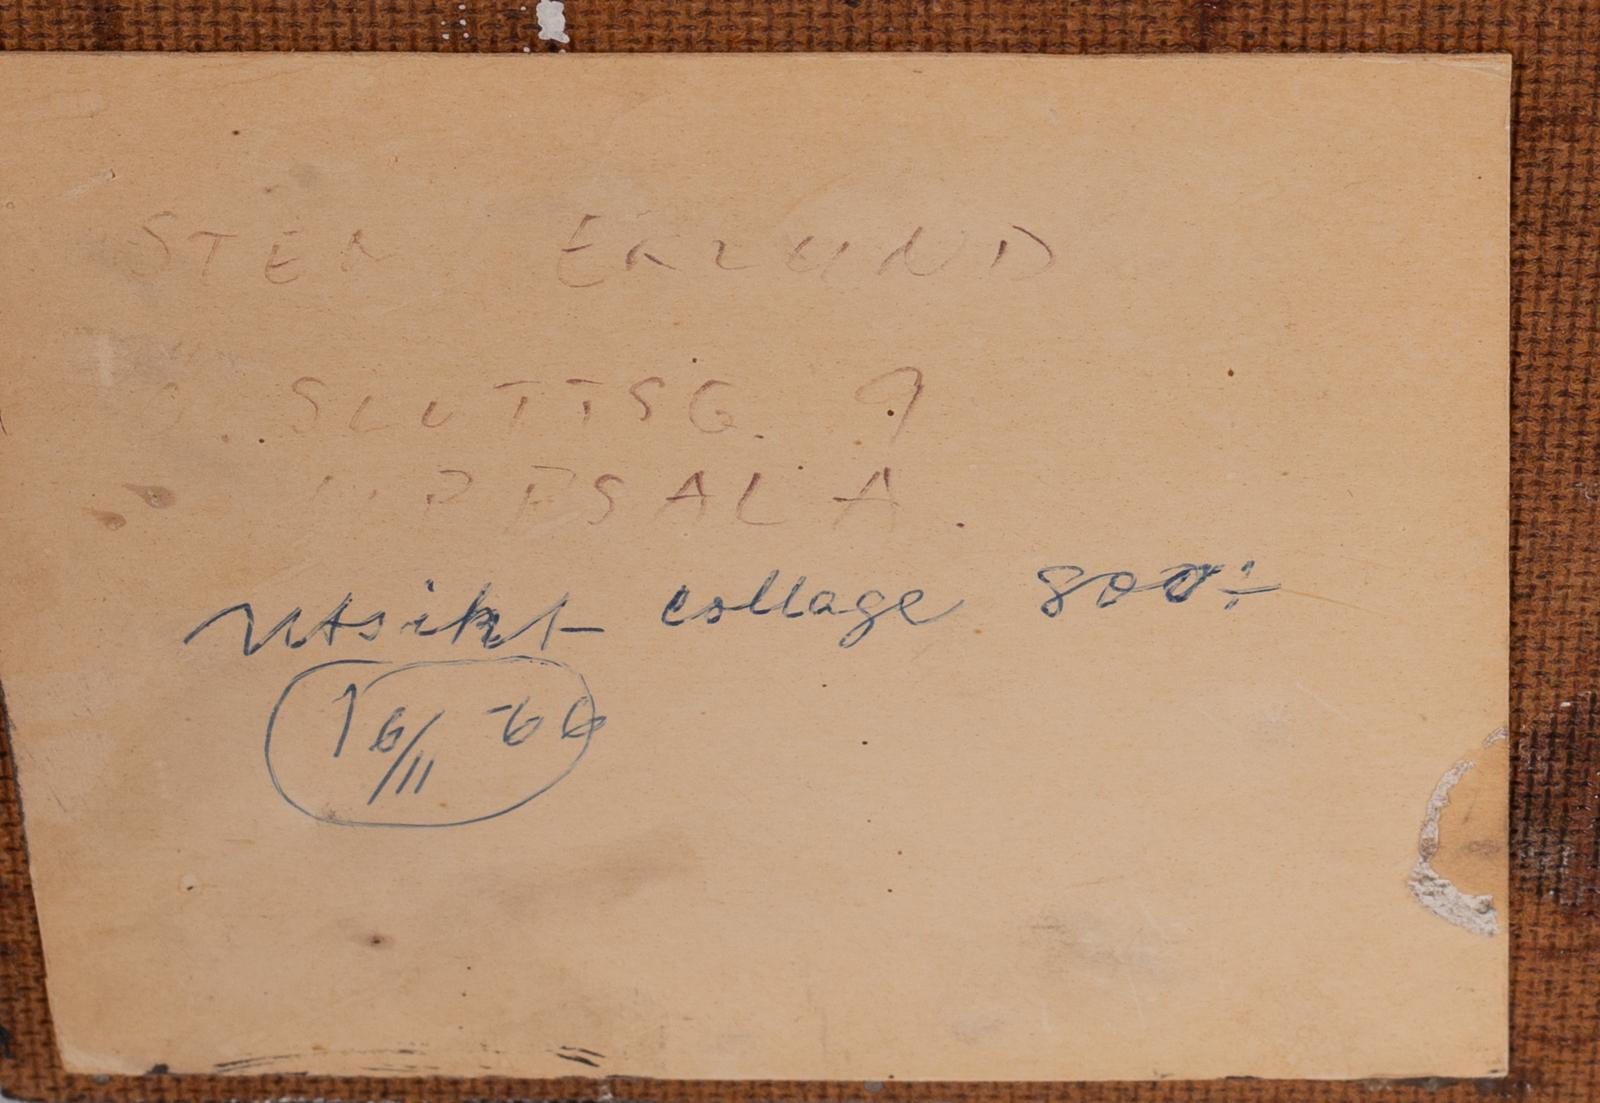 STEN EKLUND
Ö. SLOTTSG. 9
UPPSALA.
utsikt collage 800:-
16/11 -66